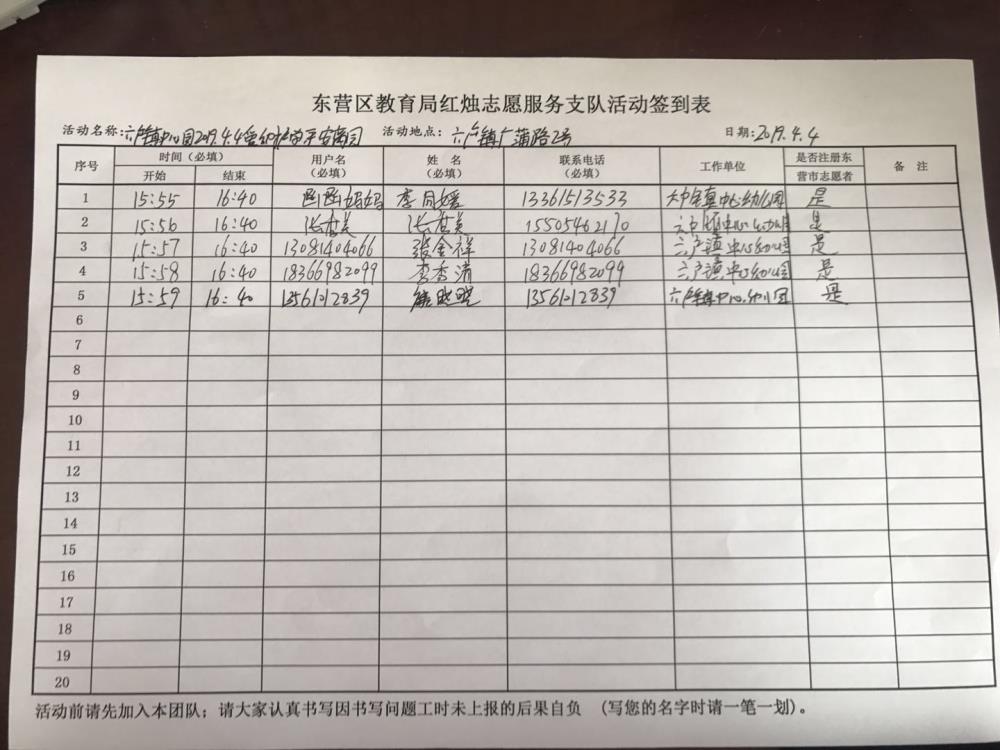 东营区教育局红烛志愿服务支队活动签到表
活动名称:六户镇中心园2019.4.4爱幼护学平安离园 活动地点:六户镇广蒲路2号 日期:2019.4.4
序号 时间(必填) 用户名(必填) 姓 名(必填) 联系电话(必填) 工作单位 是否注册东营市志愿者 备 注
开始 结束
1 15:55 16:40 函函妈妈 李同媛 13361513533 六户镇中心幼儿园 是
2 15:56 16:40 15505462170 六户镇中心幼儿园 是
3 15:57 16:40 13081404066 张金祥 13081404066 六户镇中心幼儿园 是
4 15:58 16:40 18366982099 李秀清 18366982099 六户镇中心幼儿园 是
5 15:59 16:40 13561212839 13561212839 六户镇中心幼儿园 是
6
7
8
9
10
11
12
13
14
15
16
17
18
19
20
活动前请先加入本团队;请大家认真书写因书写问题工时未上报的后果自负 (写您的名字时请一笔一划)。